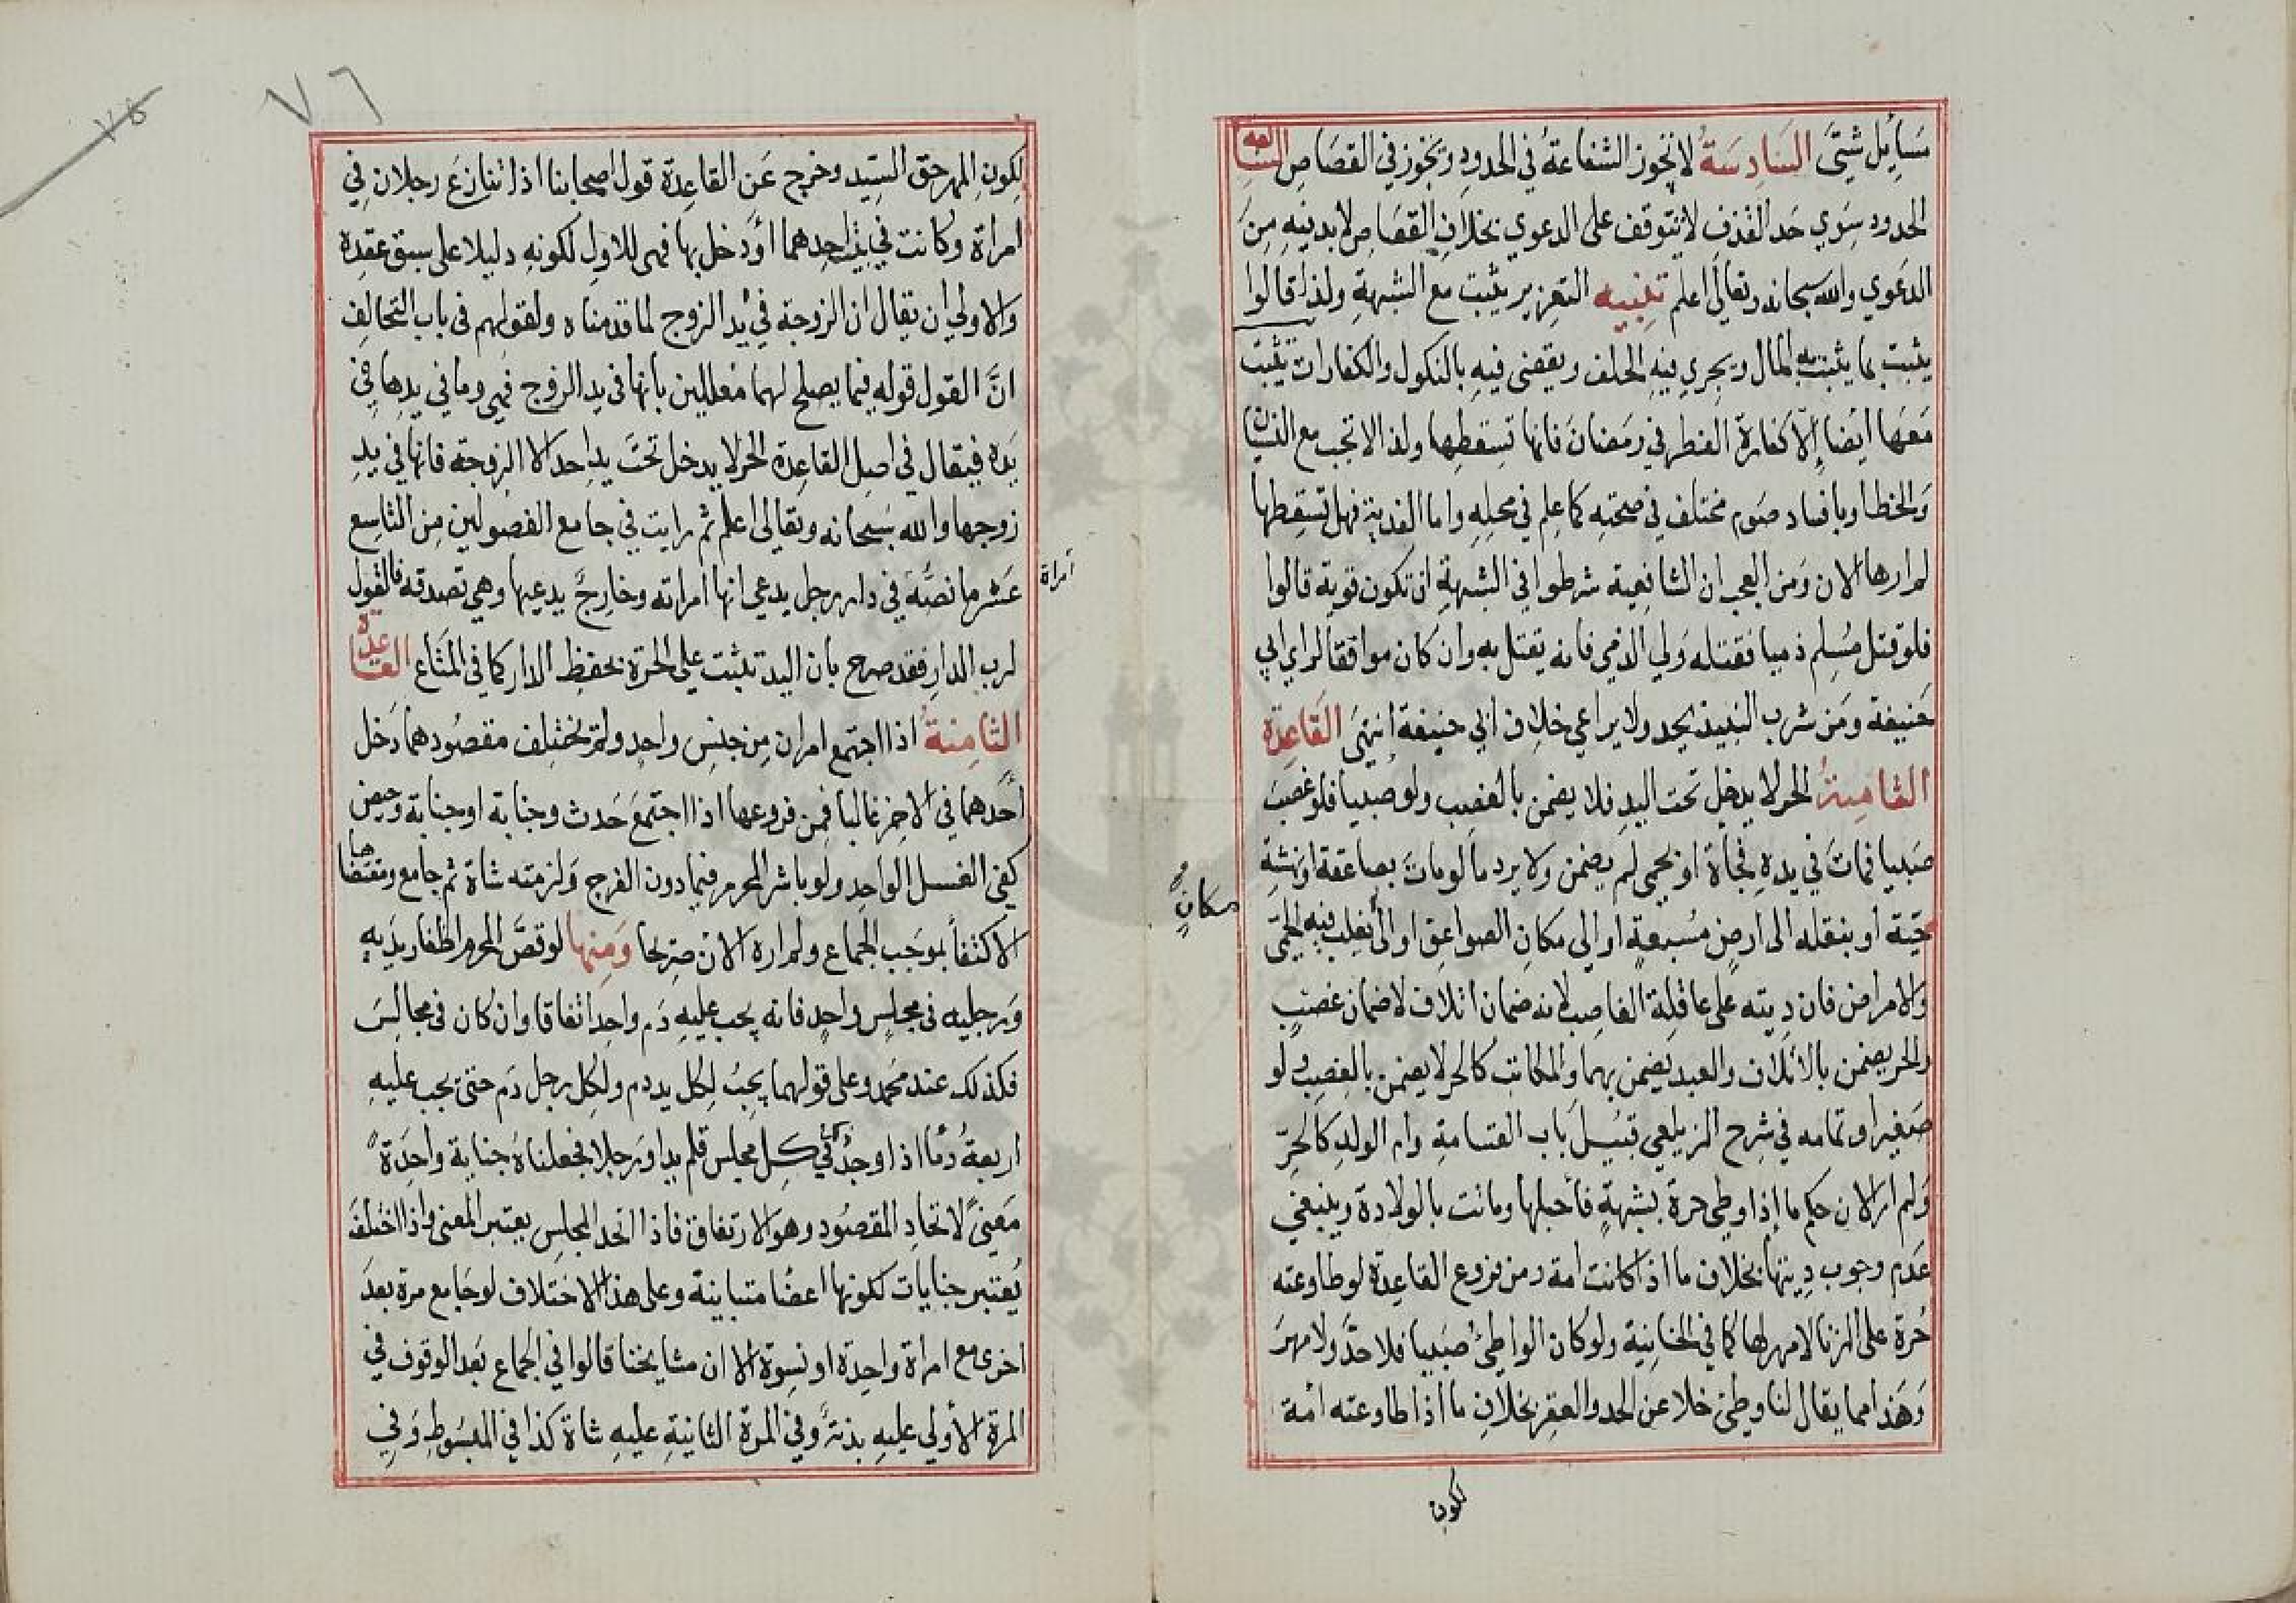 مسايل شتى السادسة لا تجوز الشفاعة في الحدود وتجوز في القصاص السابعة
الحدود سوي حد القذف لا تتوقف على الدعوي بخلاف القصاص لا بد فيه من
الدعوي والله سبحانه وتعالى اعلم تنبيه التعزير يثبت مع الشبهة ولذا قالوا
يثبت بما يثبت به المال ويجري فيه الحلف ويقضى فيه بالنكول والكفارات تثبت
معها ايضا إلا كفارة الفطر في رمضان فانها تسقطها ولذا لا تجب مع النسيان
والخطا وبافساد صوم مختلف في صحته كما علم في محله واما الفدية فهل تسقطها
لم ارها الان ومن العجب ان الشافعية شرطوا في الشبهة ان تكون قوية قالوا
فلو قتل مسلم ذميا فقتله ولي الذمي فانه يقتل به وان كان موافقا لراي ابي
حنيفة ومن شرب النبيذ يحد ولا يراعي خلاف ابي حنيفة انتهى القاعدة
الثامنة الحر لا يدخل تحت اليد فلا يضمن بالغصب ولو صبيا فلو غصب
صبيا فمات في يده فجاة او بحمى لم يضمن ولا يرد ما لو مات بصاعقة او نهشة
حية أو بنقله الى ارض مسبعة او الى مكان الصواعق او الى يغلب فيه الحمى
مكان
والامراض فان ديته على عاقلة الغاصب لانه ضمان اتلاف لا ضمان غصب
والحر يضمن بالاتلاف والعبد يضمن بهما والمكاتب كالحر لا يضمن بالغصب ولو
صغيرا وتمامه في شرح الزيلعي قبيل باب القسامة وام الولد كالحر
ولم ار الان حكم ما إذا وطى حرة بشبهة فأحبلها وماتت بالولادة وينبغي
عدم وجوب ديتها بخلاف ما اذا كانت امة ومن فروع القاعدة لو طاوعته
حرة على الزنا لا مهر لها كما في الخانية ولو كان الواطئ صبيا فلا حد ولا مهر
وهذا مما يقال لنا وطئ خلا عن الحد والعقر بخلاف ما اذا طاوعته امة
لكون
٧٦
٧٥
لكون المهر حق السيد وخرج عن القاعدة قول اصحابنا اذا تنازع رجلان في
امراة وكانت في بيت احدهما او دخل بها فهى للاول لكونه دليلا على سبق عقده
والاولي ان يقال ان الزوجة في يد الزوج لما قدمناه ولقولهم فى باب التحالف
ان القول قوله فيما يصلح لهما معللين بانها فى يد الزوج فهي وما في يدها في
يده فيقال في اصل القاعدة الحر لا يدخل تحت يد احد الا الزوجة فانها في يد
زوجها والله سبحانه وتعالى اعلم ثم رايت في جامع الفصولين من التاسع
عشر ما نصه في دار رجل يدعى انها امراته وخارج يدعيها وهي تصدقه فالقول
امراة
لرب الدار فقد صرح بان اليد تثبت على الحرة بحفظ الدار كما في المتاع القاعدة
الثامنة اذا اجتمع امران من جنس واحد ولم يختلف مقصودهما دخل
أحدهما في الاخر غالبا فمن فروعها اذا اجتمع حدث وجنابة او جنابة وحيض
كفى الغسل الواحد ولو باشر المحرم فيما دون الفرج ولزمته شاة ثم جامع ومقتضاها
الاكتفأ بموجب الجماع ولم اره الان صريحا ومنها لو قص المحرم اظفار يديه
ورجليه في مجلس واحد فانه يجب عليه دم واحد اتفاقا وان كان فى مجالس
فكذلك عند محمد وعلى قولهما يجب لكل يد دم ولكل رجل دم حتى يجب عليه
اربعة دما اذا وجد في كل مجلس قلم يد او رجل لا فجعلناه جناية واحدة
معنى لاتحاد المقصود وهو الارتفاق فاذا اتحد المجلس يعتبر المعنى واذا اختلف
يعتبر جنايات لكونها اعضا متباينة وعلى هذا الاختلاف لو جامع مرة بعد
اخرى مع امراة واحدة او نسوة الا ان مشايخنا قالوا في الجماع بعد الوقوف في
المرة الأولي عليه بدنة وفي المرة الثانية عليه شاة كذا في المبسوط وفي